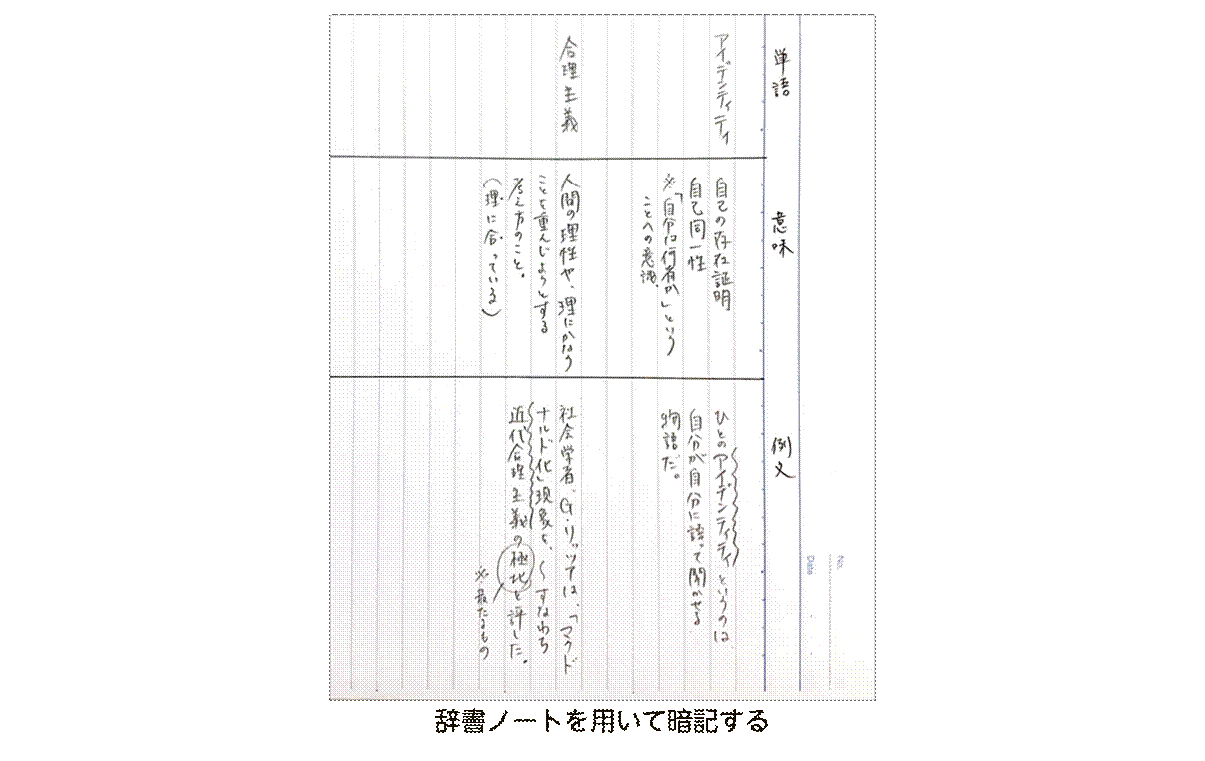 単語
意味
例文
アイデンティティ
自己の存在証明
自己同一性
※「自分は何者か」という
ことへの意識。
ひとのアイデンティティというのは、
自分が自分に語って聞かせる
物語だ。
合理主義
人間の理性や、理にかなう
ことを重んじようとする
考え方のこと。
(理に合っている)
社会学者、G・リッツアは、「マクド
ナルド化」現象を、〜すなわち
近代合理主義の極北と評した。
※最たるもの
No.
Date
辞書ノートを用いて暗記する